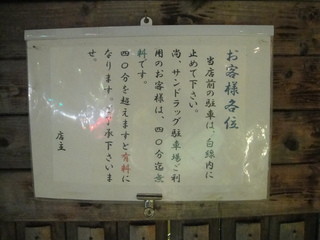 お客様各位
当店前の駐車は、白線内に
止めて下さい。
尚、サンドラッグ駐車場ご利
用のお客様は、四〇分迄無
料です。
四〇分を超えますと有料に
なります。ご了承下さいま
せ。
店主